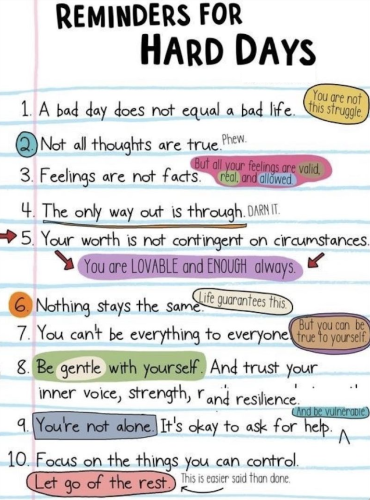 REMINDERS FOR
HARD DAYS
1. A bad day does not equal a bad life. You are not this struggle.
2 Not all thoughts are true. Phew.
3. Feelings are not facts. But all your feelings are valid, real, and allowed
4. The only way out is through. DARN IT.
5. Your worth is not contingent on circumstances.
You are LOVABLE and ENOUGH always.
6. Nothing stays the same. Life guarantees this.
7. You can't be everything to everyone But you can be true to yourself
8. Be gentle with yourself. And trust your
inner voice, strength, and resilience.
And be vulnerable
9. You're not alone. It's okay to ask for help.
10. Focus on the things you can control.
Let go of the rest. This is easier said than done.